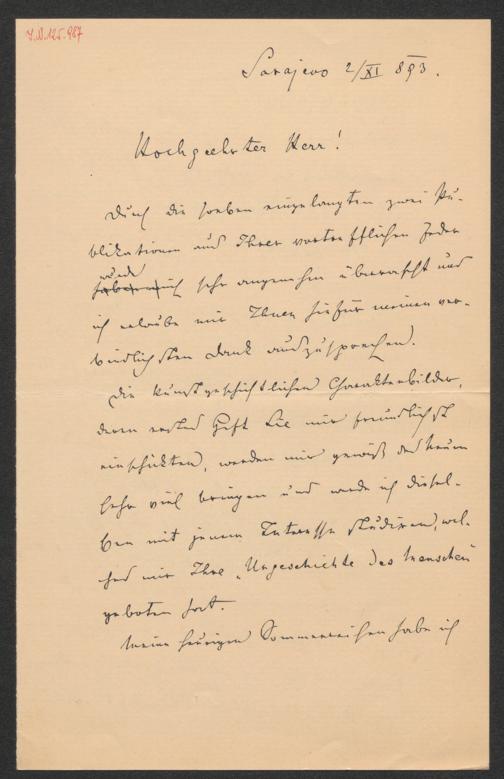 J.N.125.987
Sarajevo 2/XI 893.
Hochgeehrter Herr!
Durch die soeben eingelangten zwei Pu-
blikationen aus Ihrer vortrefflichen Feder
wurde
ich sehr angenehm überrascht und
ich erlaube mir Ihnen hiefür meinen ver-
bindlichsten Dank auszusprechen.
Die kunstgeschichtlichen Charakterbilder,
deren erstes Heft Sie mir freundlichst
einschickten, werden mir gewiß des Neuen
sehr viel bringen und werde ich diesel-
ben mit jenem Interesse studieren, wel-
ches mir Ihre „Urgeschichte des Menschen"
geboten hat.
Meine heurigen Sommerreisen habe ich